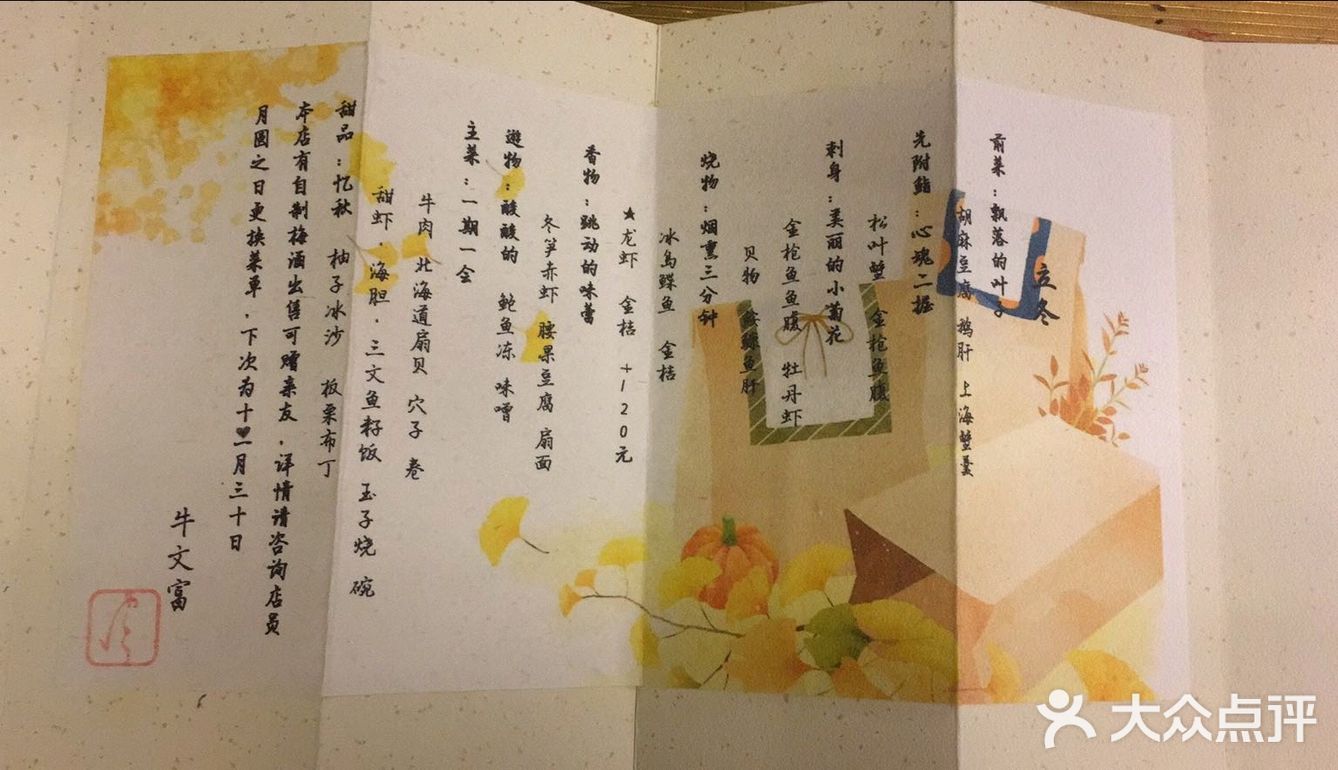 立冬
前菜：飘落的叶子
胡麻豆腐 鹅肝 上海蟹羹
先附鮨：心魂二握
松叶蟹 金枪鱼腹
刺身：美丽的小菊花
金枪鱼鱼腹 牡丹虾
贝物 鮟鱇鱼肝
烧物：烟熏三分钟
冰岛鲽鱼 金桔
★龙虾 金桔 +120元
香物：跳动的味蕾
冬笋赤虾 腰果豆腐 扇面
逝物：酸酸的 鲍鱼冻 味噌
主菜：一期一会
牛肉 北海道扇贝 穴子 卷
甜虾．海胆．三文鱼籽饭 玉子烧 碗
甜品：忆秋 柚子冰沙 板栗布丁
本店有自制梅酒出售可赠亲友．详情请咨询店员
月圆之日更换菜单．下次为十一月三十日
牛文富
大众点评